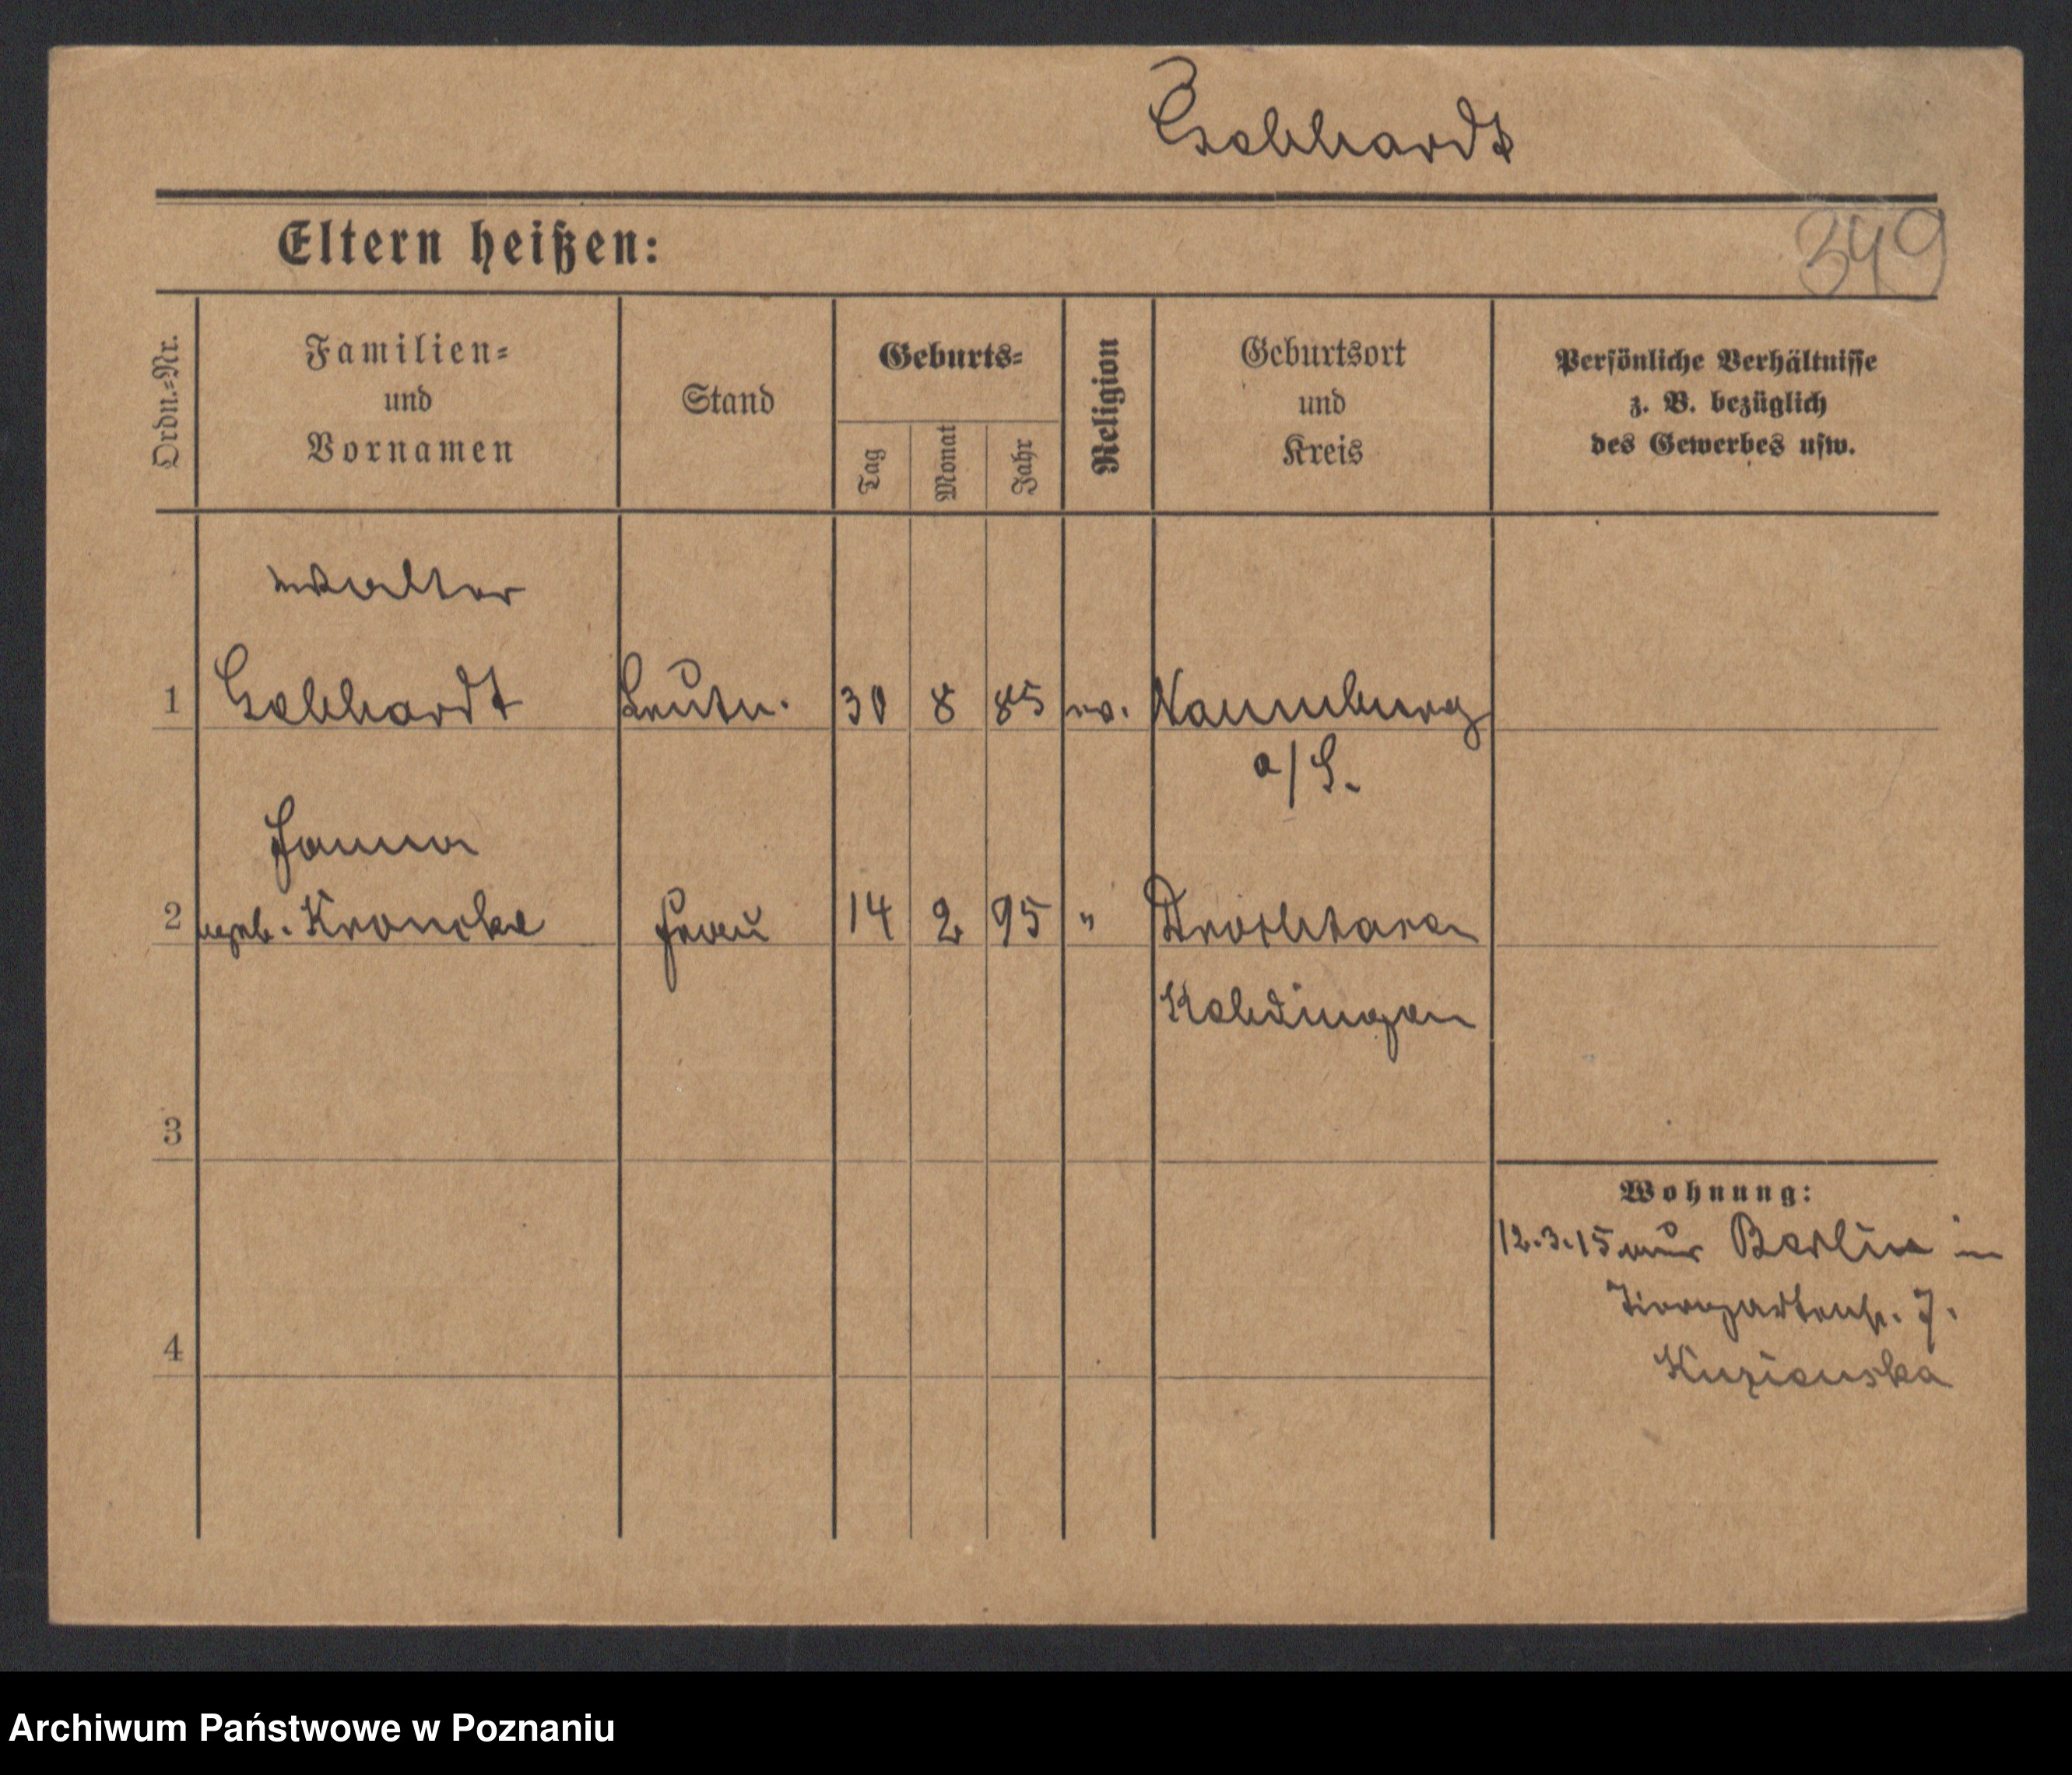 Gebhardt
Eltern heißen:
349
Ordn.=Nr.
Familien= und Vornamen
Stand
Geburts=
Tag
Monat
Jahr
Religion
Geburtsort und Kreis
Persönliche Verhältnisse z. B. bezüglich des Gewerbes usw.
Walter
1 Gebhardt Leutn. 30 8 85 ev. Naumburg
a/S.
Hanna
2 geb. Kroncke Frau 14 2 95 " Drochtersen
Kehdingen
3
4
Wohnung:
12.3.15 aus Berlin in
Tiergartenstr. 7.
Archiwum Państwowe w Poznaniu